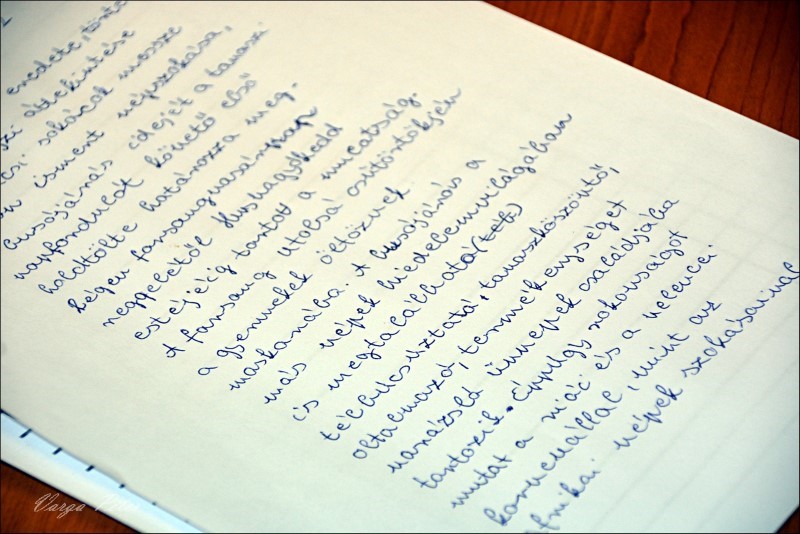 eredete, törté
szi áttekintése
csi sokácok messze
on ismert népszokása,
busójárás idejét a tavaszi
napfordulót követő első
holdtölte határozza meg.
Régen farsangvasárnap
reggelétől Húshagyókedd
estéjéig tartott a mulatság.
A farsang utolsó csütörtökjén
a gyermekek öltöznek
maskarába. A busójárás a
más népek hiedelemvilágában
is megtalálható
télbúcsúztató, tavaszköszöntő,
oltalmazó, termékenységet
varázsló ünnepek családjába
tartozik. Éppúgy rokonságot
mutat a riói és a velencei
karnevállal, mint az
afrikai népek szokásaival
Varga